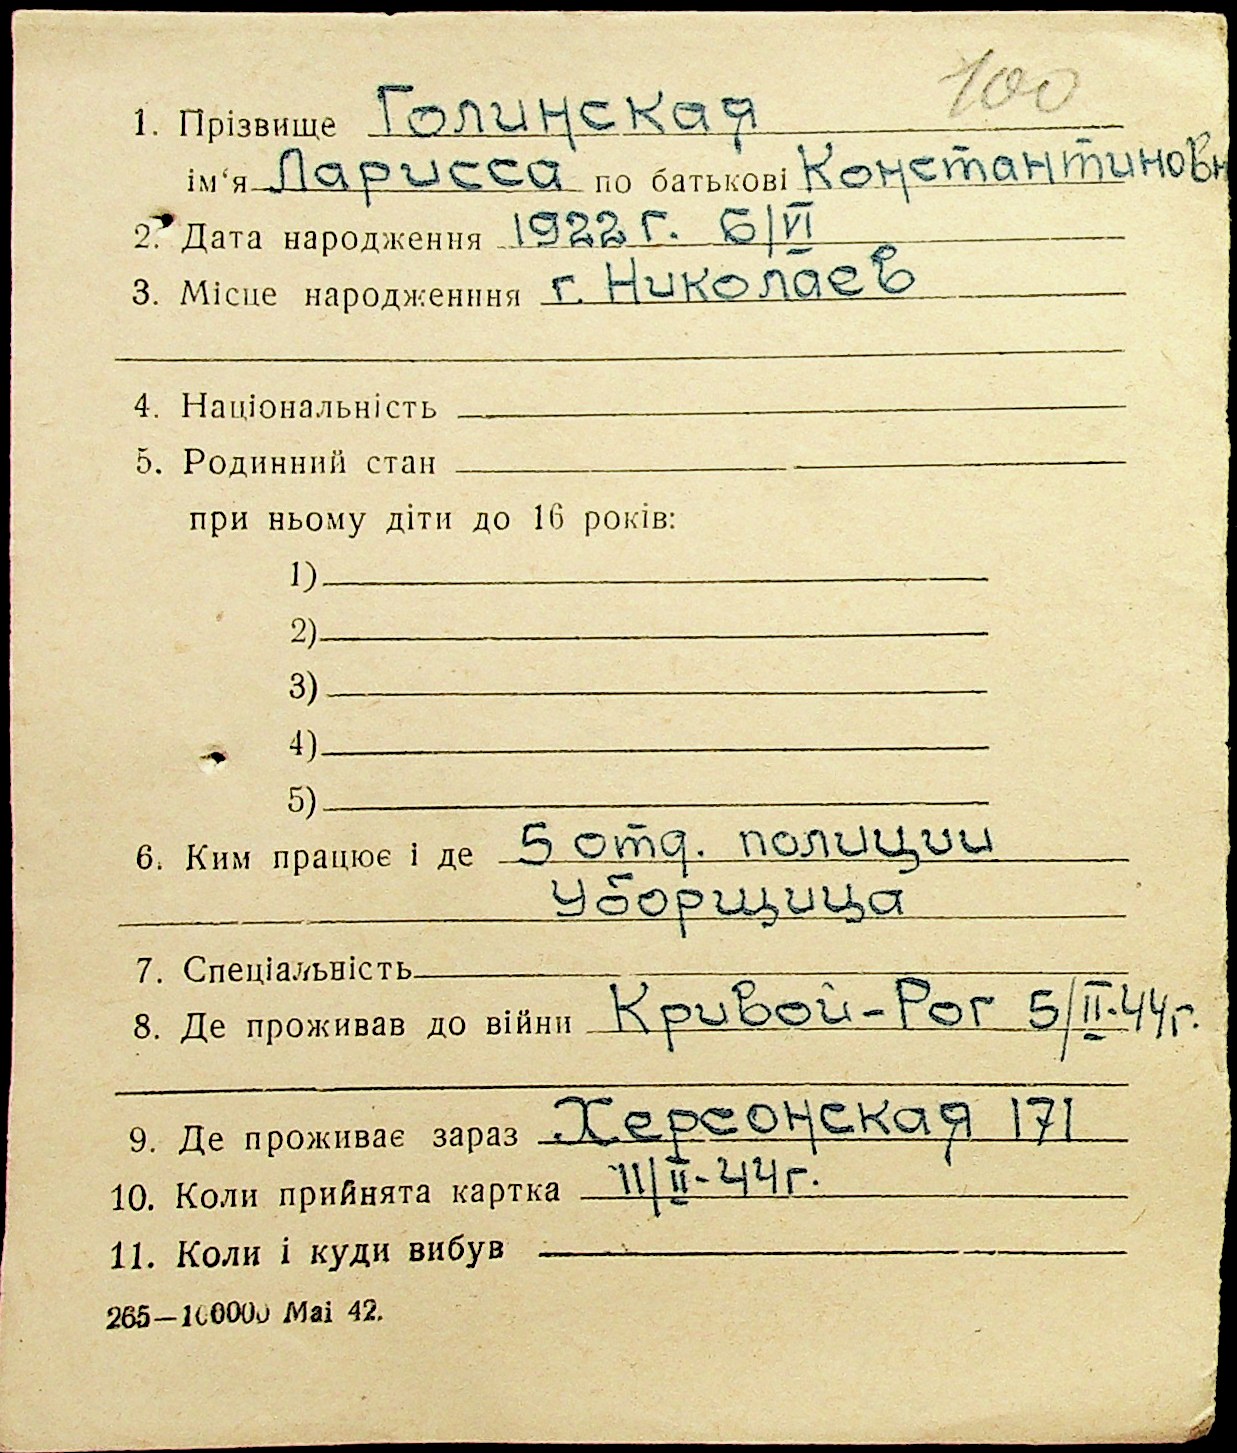 100
1. Прізвище Голинская
ім‘я Ларисса по батькові Константиновн
2. Дата народження 1922 г. 6/VI
3. Місце народженння г. Николаев
4. Національність
5. Родинний стан
при ньому діти до 16 років:
1)
2)
3)
4)
5)
6. Ким працює і де 5 отд. полиции
Уборщица
7. Спеціальність
8. Де проживав до війни Кривой-Рог 5/II-44г.
9. Де проживає зараз Херсонская 171
10. Коли прийнята картка 11/II-44г.
11. Коли і куди вибув
265—100000 Mai 42.